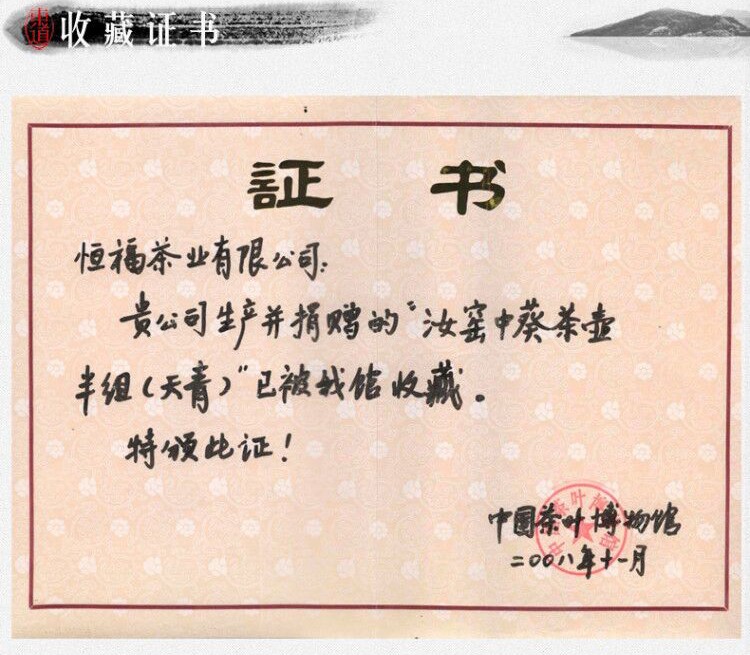 收藏证书
証 书
恒福茶业有限公司:
贵公司生产并捐赠的“汝窑中葵茶壶
半组(天青)”已被我馆收藏。
特颁此证!
中国茶叶博物馆
二00八年十一月